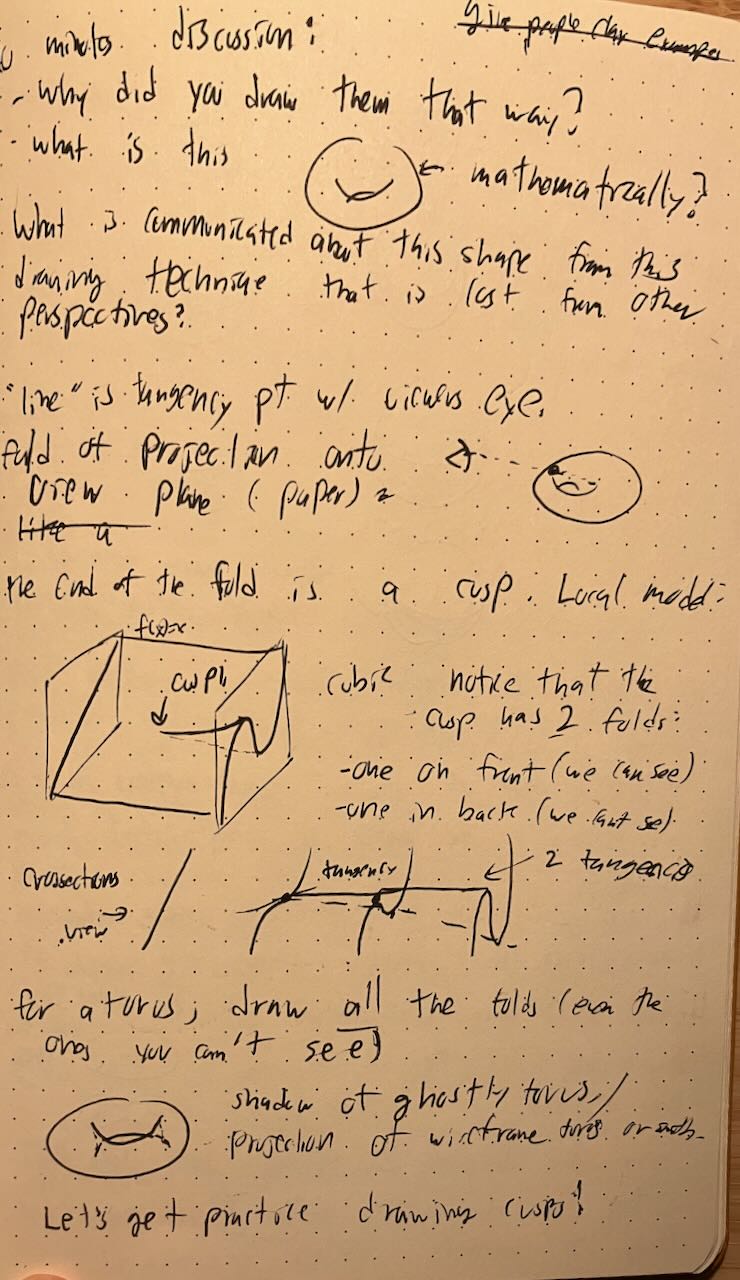 give people clay examples
minutes discussion:
- why did you draw them that way?
- what is this ← mathematically?
What is communicated about this shape from this
drawing technique that is lost from other
perspectives?
"line" is tangency pt w/ viewers eye.
fold of projection onto
view plane (paper)
like a
the end of the fold is a cusp. Local model:
f(x)=x
cusp!
cubic notice that the
cusp has 2 folds:
- one on front (we can see)
- one in back (we can't se)
crossections
view →
tangency
2 tangencies
for a torus, draw all the folds (even the
ones you can't see)
shadow of ghostly torus /
projection of wireframe torus or
Let's get practice drawing cusps!